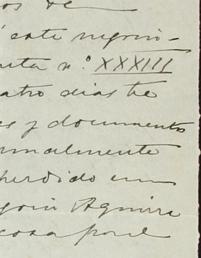 os de
este negocio-
uta n.º XXXIII
atro dias de
es y documentos
rmalmente
perdido en
Aguirre
cosa por el